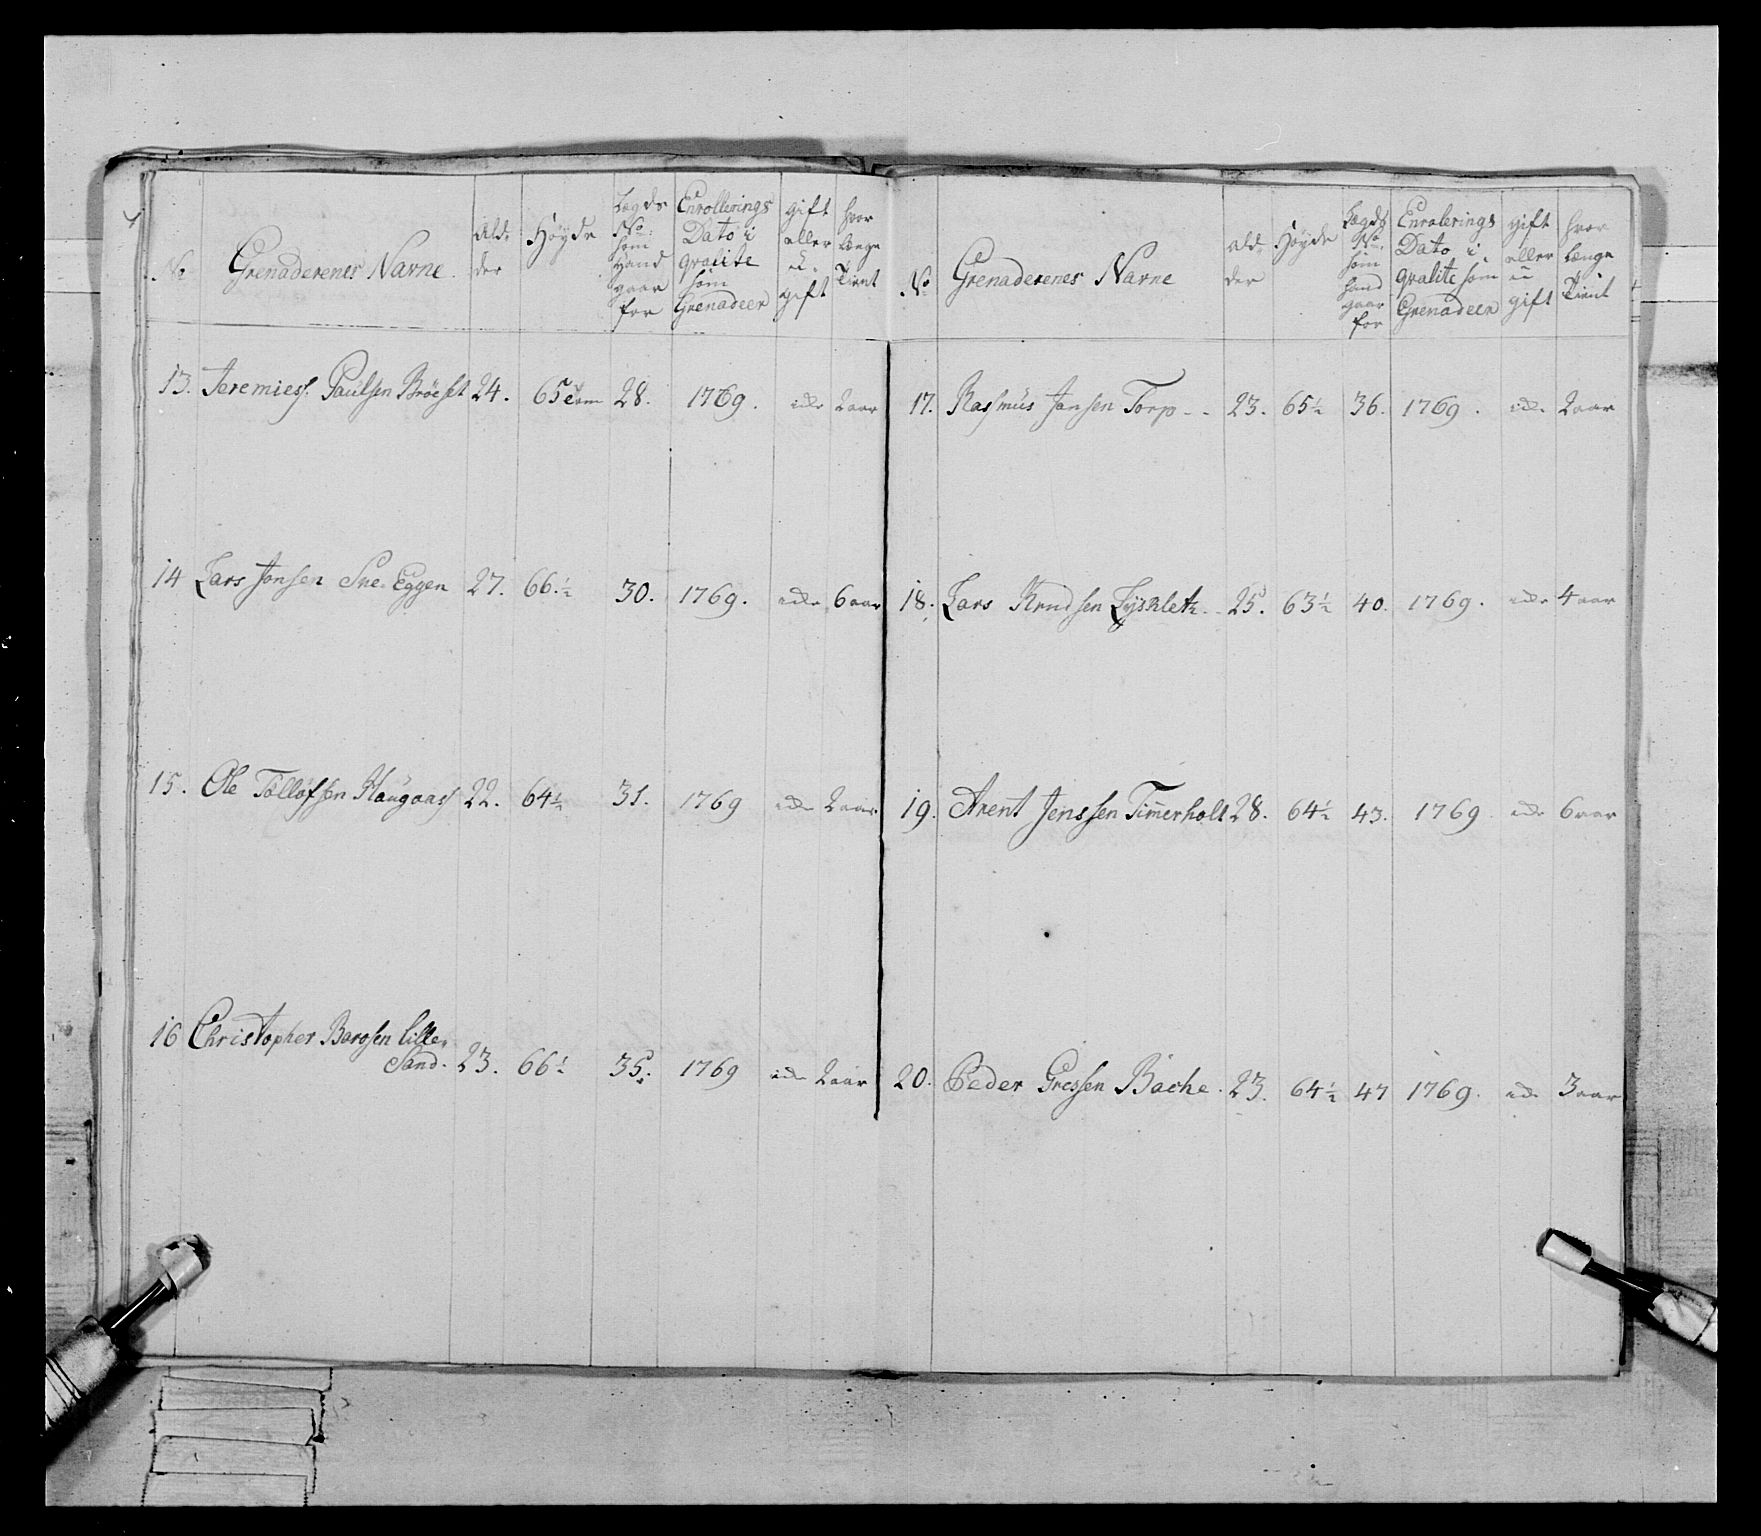 No Grenaderenes Navne. Al- der Høyde Lægds No som Hand gaar for Enrollerings Dato i qvalite som Grenadeer gift eller u- gift hvor længe Tient
13. Jeremiess. Paulsen Brøeset 24. 65 28. 1769. idem 2 aar
14 Lars Jonsen Sne-Eggen 27. 66 ½ 30. 1769. idem 6 aar
15. Ole Tolløfsen Haugaass 22. 64 ½ 31. 1769 idem 2 aar
16 Christopher Barosen Lille-
Sand. 23. 66 ½ 35. 1769 idem 2 aar
No Grenaderenes Navne Al- der Høyde Lægds No som Hand gaar for Enrolerings Dato i qvalite som Grenadeer gift eller u gift hvor længe Tient
17. Rasmus Jansen Torp - - 23. 65 ½ 36. 1769. idem 2 aar
18. Lars Knudsen Lysklet 25. 63 ½ 40. 1769. idem 4 aar
19. Arent Jenssen Tim̄erholt 28. 64 ½ 43. 1769 idem 6 aar
20. Peder Gressen Bache. 23. 64 ½ 47 1769. idem 3 aar